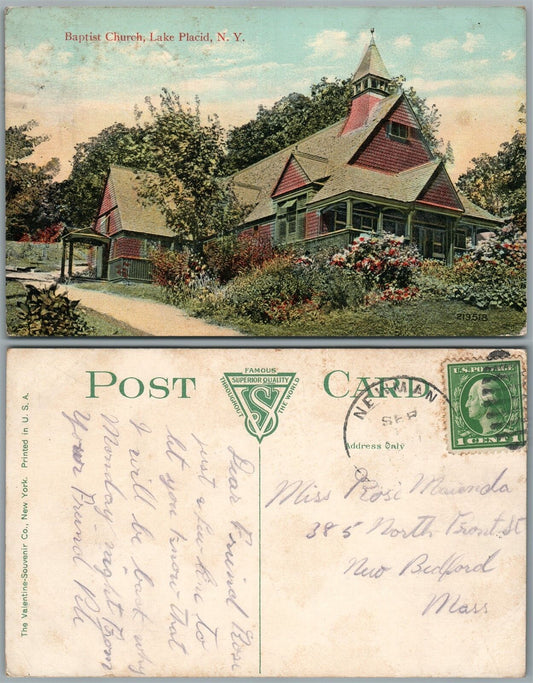 Baptist Church, Lake Placid, N. Y.
213518
POST CARD
FAMOUS
SUPERIOR QUALITY
THROUGHOUT THE WORLD
VS
Address Only
NEWMAN
SEP
U.S. POSTAGE
1 CENT 1
The Valentine-Souvenir Co., New York. Printed in U. S. A.
Dear Friend Rose
just a few line to
let you know that
I will be back
Monday night from
Your Friend
Miss Rose
385 North Front St
New Bedford
Mass